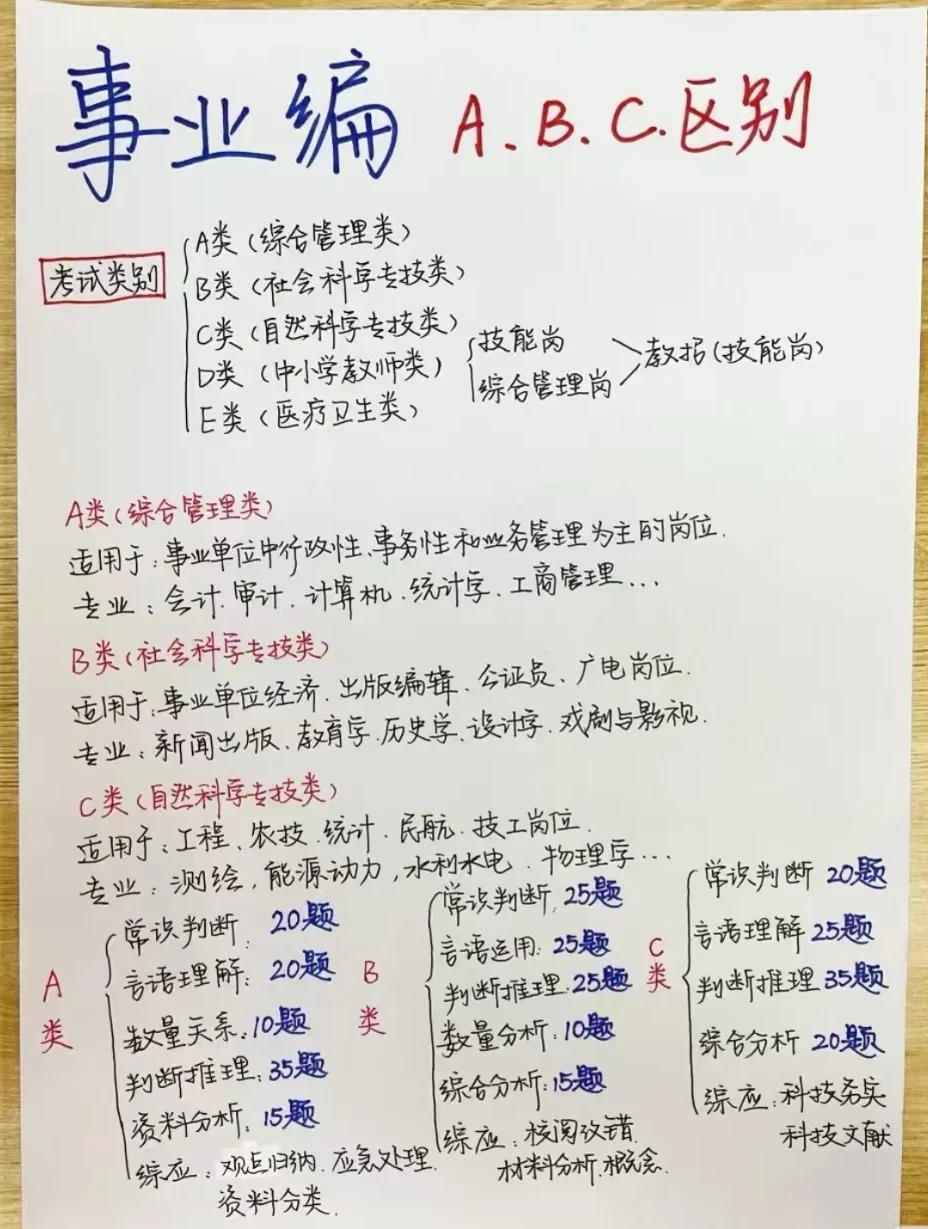 事业编 A.B.C.区别
考试类别
A类(综合管理类)
B类(社会科学专技类)
C类(自然科学专技类)
D类(中小学教师类)
E类(医疗卫生类)
技能岗
综合管理岗
教招(技能岗)
A类(综合管理类)
适用于:事业单位中行政性、事务性和业务管理为主的岗位.
专业:会计.审计.计算机.统计学、工商管理...
B类(社会科学专技类)
适用于:事业单位经济.出版编辑.公证员、广电岗位.
专业:新闻出版、教育学.历史学、设计学、戏剧与影视.
C类(自然科学专技类)
适用于:工程、农技.统计.民航.技工岗位.
专业:测绘,能源动力,水利水电.物理学...
A类
常识判断. 20题
言语理解: 20题
数量关系. 10题
判断推理: 35题
资料分析: 15题
综应:观点归纳.应急处理.
资料分类.
B类
常识判断. 25题
言语运用: 25题
判断推理. 25题
数量分析: 10题
综合分析: 15题
综应:校阅改错.
材料分析.概念.
C类
常识判断 20题
言语理解 25题
判断推理 35题
综合分析 20题
综应:科技务实
科技文献